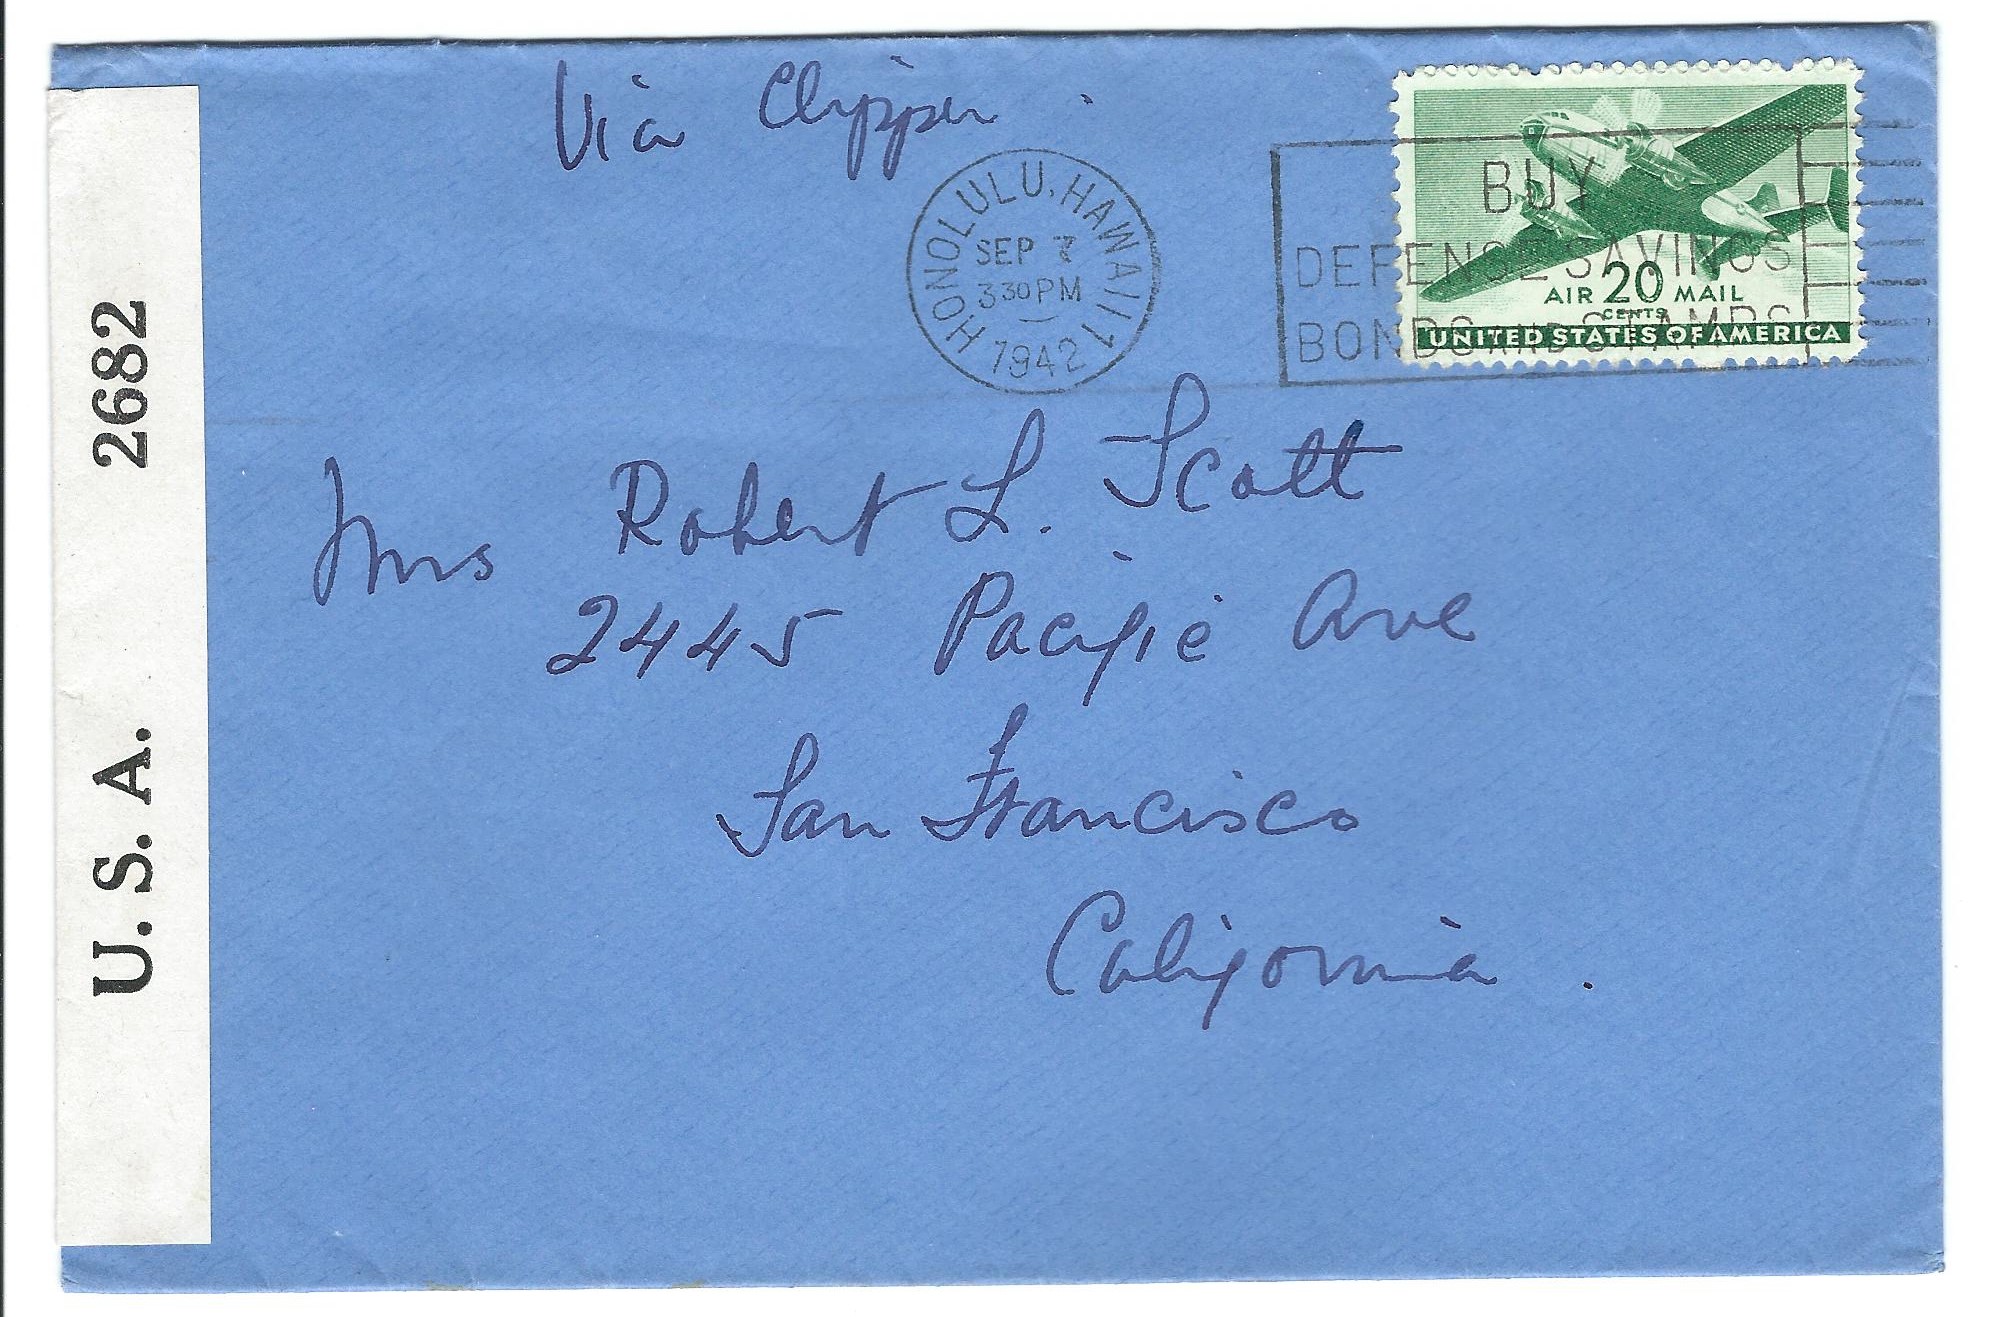 Via Clipper
HONOLULU, HAWAII 1
SEP 7
3 30 PM
1942
BUY
DEFENSE SAVINGS
BONDS AND STAMPS
AIR 20 MAIL
CENTS
UNITED STATES OF AMERICA
U. S. A. 2682
Mrs Robert L. Scott
2445 Pacific Ave
San Francisco
California.